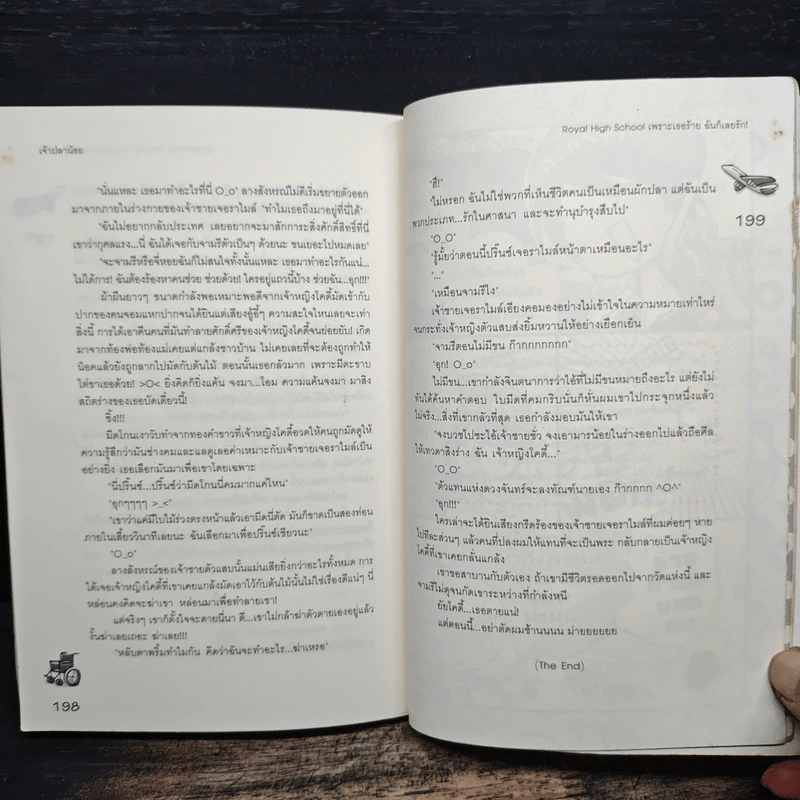 เจ้าปลาน้อย
"นั่นแหละ เธอมาทำอะไรที่นี่ O_o" ลางสังหรณ์ไม่ดีเริ่มขยายตัวออก
มาจากภายในร่างกายของเจ้าชายเจอราไมล์ "ทำไมเธอถึงมาอยู่ที่นี่ได้"
"ฉันไม่อยากกลับประเทศ เลยอยากจะมาสักการะสิ่งศักดิ์สิทธิ์ที่นี่
เขาว่ากุศลแรง...นี่ ฉันได้เจอกับจามรีตัวเป็นๆ ด้วยนะ ขนเยอะไปหมดเลย"
"จะจามรีหรือจี่หอยฉันก็ไม่สนใจทั้งนั้นแหละ เธอมาทำอะไรกันแน่...
ไม่ได้การ! ฉันต้องร้องหาคนช่วย ช่วยด้วย! ใครอยู่แถวนี้บ้าง ช่วยฉัน...อุก!!!"
ผ้าผืนยาวๆ ขนาดกำลังพอเหมาะพอดีจากเจ้าหญิงโคดี้มัดเข้ากับ
ปากของคนจอมแหกปากจนได้ยินแต่เสียงอู้อี้ๆ ความสะใจไหนเลยจะเท่า
สิ่งนี้ การได้เอาคืนคนที่มันทำลายศักดิ์ศรีของเจ้าหญิงโคดี้จนย่อยยับ! เกิด
มาจากท้องพ่อท้องแม่เคยแต่แกล้งชาวบ้าน ไม่เคยเลยที่จะต้องถูกทำให้
น็อคแล้วยังถูกลากไปมัดกับต้นไม้ ตอนนั้นเธอกลัวมาก เพราะมีตะขาบ
ไต่ขาเธอด้วย! >O< ยิ่งคิดก็ยิ่งแค้น จงมา...โอม ความแค้นจงมา มาสิง
สถิตร่างของเธอบัดเดี๋ยวนี้!
ชิ้ง!!!
มีดโกนเงาวับทำจากทองคำขาวที่เจ้าหญิงโคดี้อวดให้คนถูกมัดดูให้
ความรู้สึกว่ามันช่างคมและแลดูเลอค่าเหมาะกับเจ้าชายเจอราไมล์เป็น
อย่างยิ่ง เธอเลือกมันมาเพื่อเขาโดยเฉพาะ
"นี่ปริ๊นซ์...ปริ๊นซ์ว่ามีดโกนนี่คมมากแค่ไหน"
"อุกๆๆๆๆ >_<"
"เขาว่าแค่มีใบไม้ร่วงตรงหน้าแล้วเอามีดนี่ตัด มันก็ขาดเป็นสองท่อน
ภายในเสี้ยววินาทีเลยนะ ฉันเลือกมาเพื่อปริ๊นซ์เชียวนะ"
"O_o"
ลางสังหรณ์ของเจ้าชายตัวแสบนั้นแม่นเสียยิ่งกว่าอะไรทั้งหมด การ
ได้เจอเจ้าหญิงโคดี้ที่เขาเคยแกล้งมัดเอาไว้กับต้นไม้นั้นไม่ใช่เรื่องดีแน่ๆ นี่
หล่อนคงคิดจะฆ่าเขา หล่อนมาเพื่อทำลายเขา!
แต่จริงๆ เขาก็ตั้งใจจะตายนี่นา ดี...เขาไม่กล้าฆ่าตัวตายเองอยู่แล้ว
งั้นฆ่าเลยเถอะ ฆ่าเลย!!!
"หลับตาพริ้มทำไมกัน คิดว่าฉันจะทำอะไร...ฆ่าเหรอ"
198
Royal High School เพราะเธอร้าย ฉันก็เลยรัก!
"ฮึ!"
"ไม่หรอก ฉันไม่ใช่พวกที่เห็นชีวิตคนเป็นเหมือนผักปลา แต่ฉันเป็น
พวกประเภท...รักในศาสนา และจะทำนุบำรุงสืบไป"
199
"O_O"
"รู้มั้ยว่าตอนนี้ปริ๊นซ์เจอราไมล์หน้าตาเหมือนอะไร"
"..."
"เหมือนจามรีไง"
เจ้าชายเจอราไมล์เอียงคอมองอย่างไม่เข้าใจในความหมายเท่าไหร่
จนกระทั่งเจ้าหญิงตัวแสบส่งยิ้มหวานให้อย่างเยือกเย็น
"จามรีตอนไม่มีขน ก๊ากกกกกกก"
"อุก! O_o"
ไม่มีขน...เขากำลังจินตนาการว่าไอ้ที่ไม่มีขนหมายถึงอะไร แต่ยังไม่
ทันได้ค้นหาคำตอบ ใบมีดที่คมกริบนั่นก็หั่นผมเขาไปกระจุกหนึ่งแล้ว
ไม่จริง...สิ่งที่เขากลัวที่สุด เธอกำลังมอบมันให้เขา
"จงบวชไปซะไอ้เจ้าชายชั่ว จงเอามารน้อยในร่างออกไปแล้วถือศีล
ให้เทวดาสิงร่าง ฉัน เจ้าหญิงโคดี้..."
"O_O"
"ตัวแทนแห่งดวงจันทร์จะลงทัณฑ์นายเอง ก๊ากกกก ^O^"
"อุก!!!"
ใครเล่าจะได้ยินเสียงกรีดร้องของเจ้าชายเจอราไมล์ที่ผมค่อยๆ หาย
ไปทีละส่วนๆ แล้วคนที่ปลงผมให้แทนที่จะเป็นพระ กลับกลายเป็นเจ้าหญิง
โคดี้ที่เขาเคยกลั่นแกล้ง
เขาขอสาบานกับตัวเอง ถ้าเขามีชีวิตรอดออกไปจากวัดแห่งนี้ และ
จามรีไม่ดุจนกัดเขาระหว่างที่กำลังหนี
ยัยโคดี้...เธอตายแน่!
แต่ตอนนี้...อย่าตัดผมช้านนนน ม่ายยยยยย
(The End)